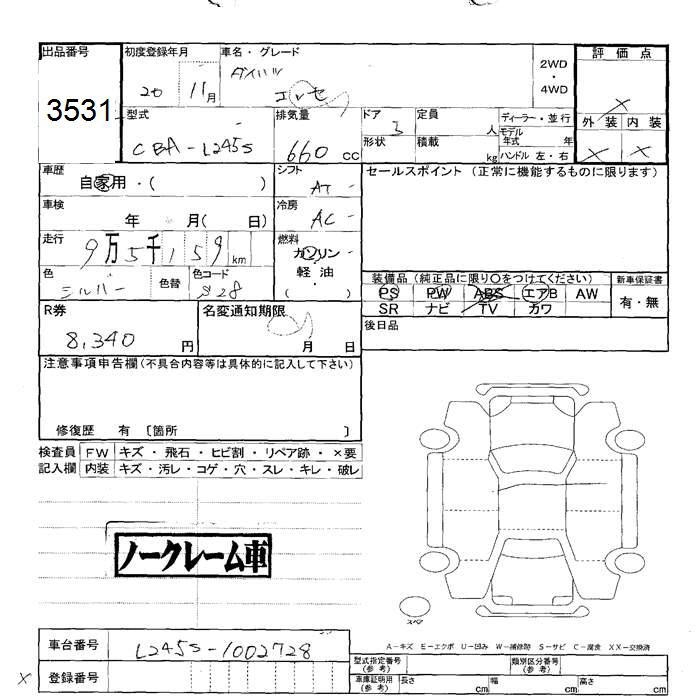 出品番号
3531
初度登録年月
20 11月
車名・グレード
ダイハツ
エッセ
2WD
・
4WD
評価点
×
外装 内装
× ×
型式
CBA-L245S
排気量
660 cc
ドア
3
形状
定員
人
積載
kg
ディーラー・並行
モデル年式 年
ハンドル 左・右
車歴
自家用・( )
シフト
AT
車検
年 月( 日)
冷房
AC
走行
9万5千159km
燃料
ガソリン・軽油・( )
色
シルバー
色替
色コード
S28
セールスポイント (正常に機能するものに限ります)
装備品 (純正品に限り○をつけてください)
PS PW ABS エアB AW
SR ナビ TV カワ
新車保証書
有・無
後日品
R券
8,340 円
名変通知期限
月 日
注意事項申告欄(不具合内容等は具体的に記入して下さい)
修復歴 有 〔箇所 〕
検査員記入欄
FW キズ・飛石・ヒビ割・リペア跡・×要
内装 キズ・汚レ・コゲ・穴・スレ・キレ・破レ
ノークレーム車
スペア
A-キズ E-エクボ U-凹み W-補修跡 S-サビ C-腐食 XX-交換済
車台番号
L245S-1002728
× 登録番号
型式指定番号(参考)
類別区分番号(参考)
車庫証明用(参考)
長さ cm
幅 cm
高さ cm